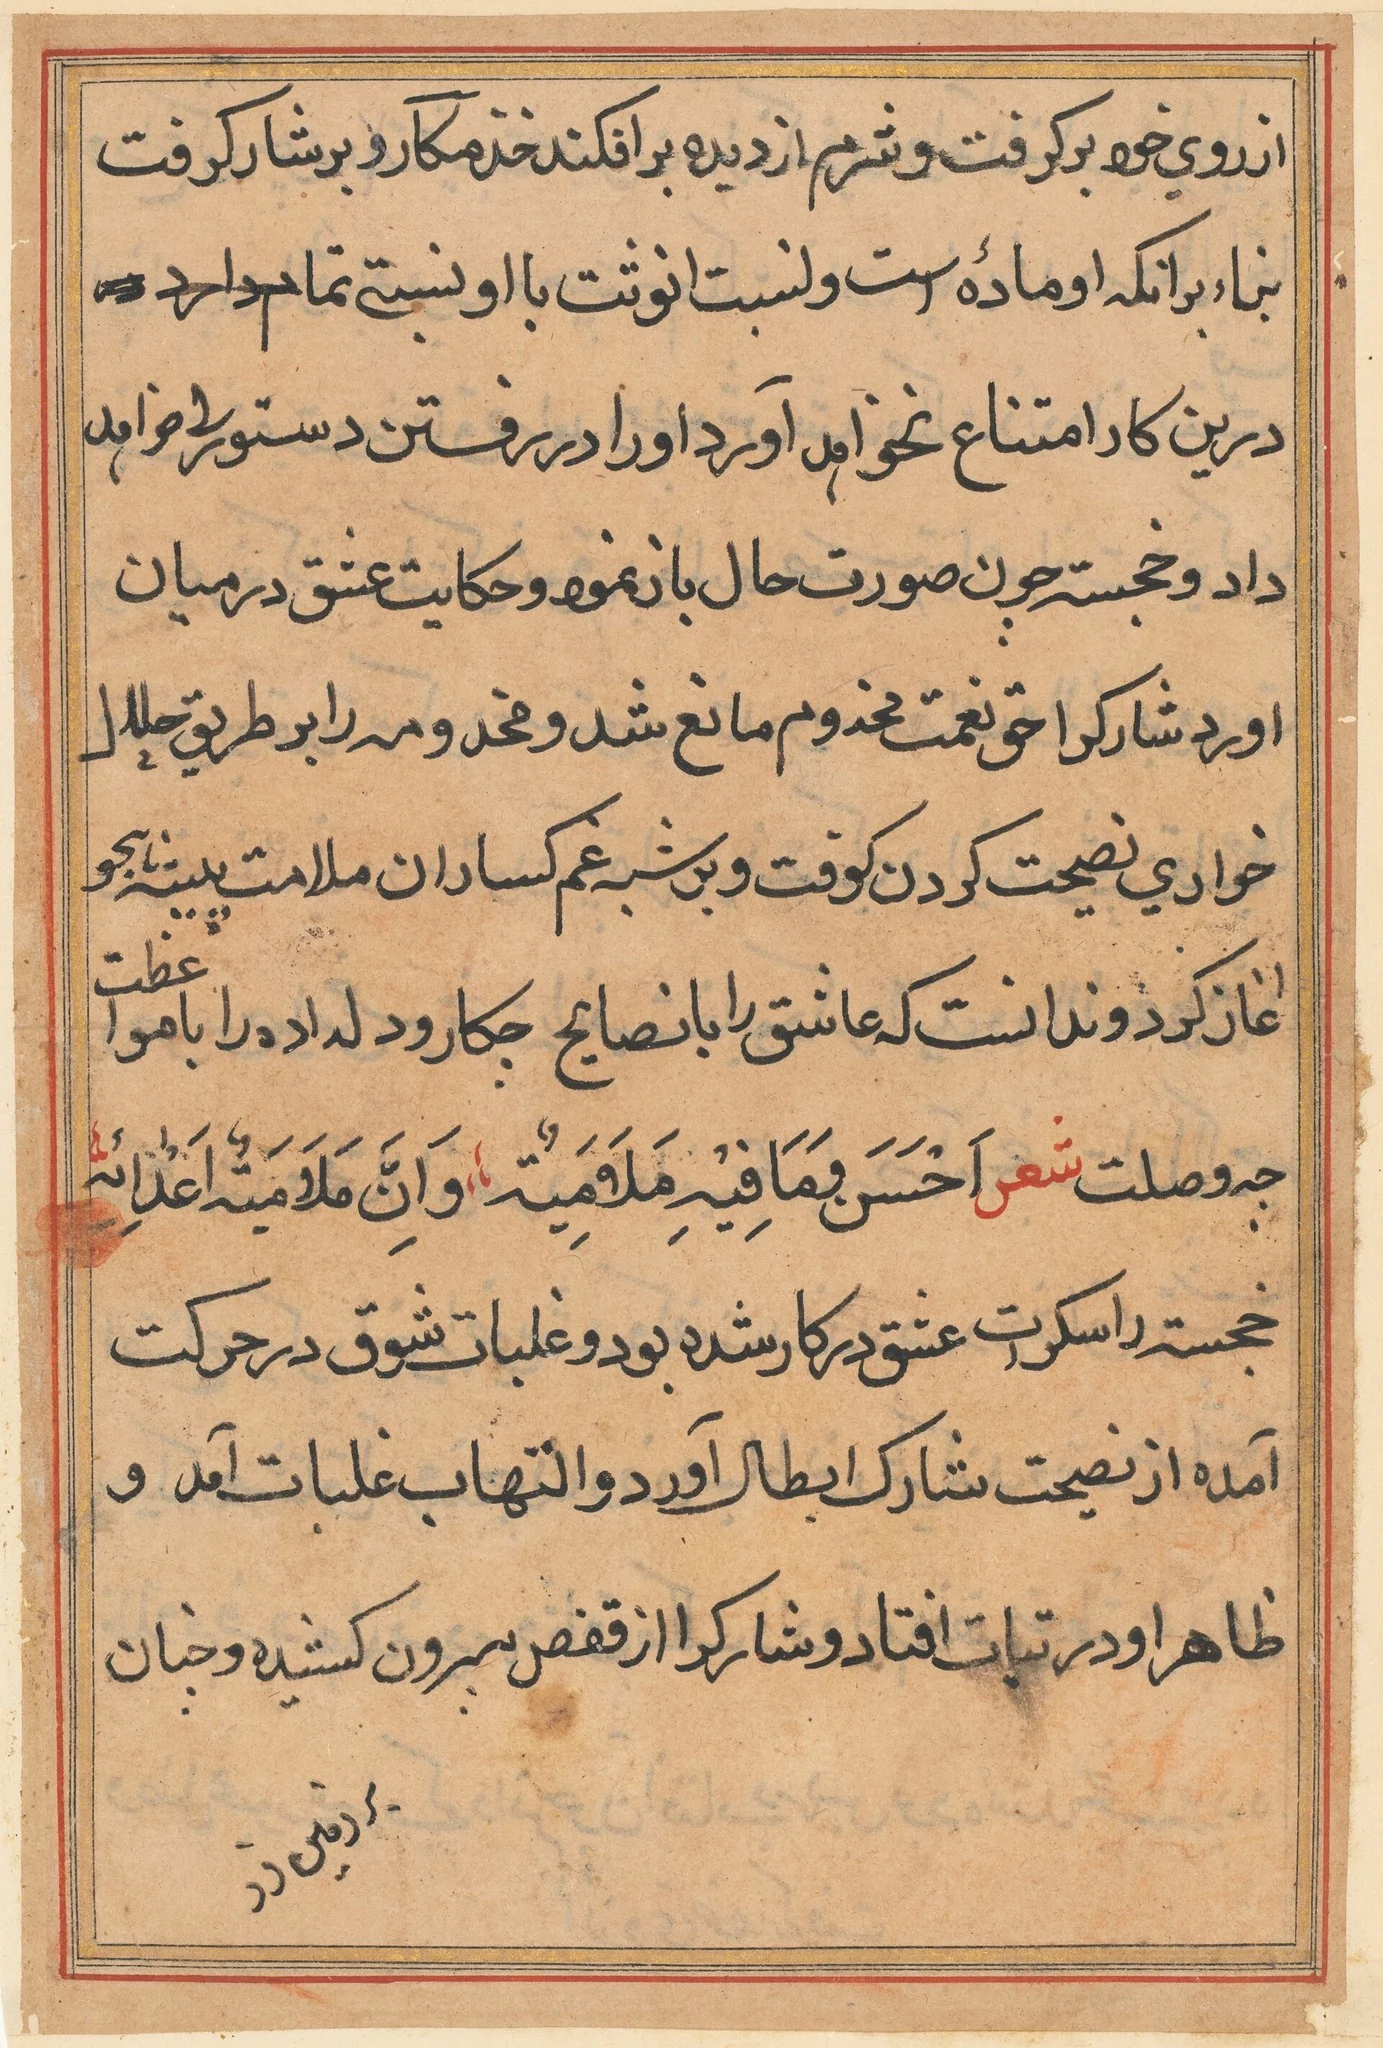 از روي خود بر کرفت و شرم از دیده بر افکند خذ مکار و بر شار کرفت
بناء بر انکه او مادۀ است و نسبت انوثت با او نسبتے تمام دارد
درین کار امتناع نخواهد آورد اورا در رفتن دستوري خواهد
داد و خجسته چون صورت حال باز نمود و حکایت عشق در میان
اورد شارکرا حق نعمت مخدوم مانع شد و مخدومه را بر طریق حلال
خواري نصیحت کردن کوفت و بر شبه غم کساران ملامت پیشه
اغاز کرد و ندانست که عاشق را با نصایح چکار و دلداده را با مواعظت
چه وصلت شعر اَحْسَن وَمَا فِیْهِ مَلَاْمِیَة وَاَنَّ مَلَاْمِیَة اَعْدَائِهِ
خجسته را سکرات عشق در کار شده بود و غلبات شوق در حرکت
آمده از نصیحت شارک ابطال آورد و التهاب غلبات آمد و
ظاهر او در تبات افتاد و شارکرا از قفص بیرون کشیده و چنان
بر زمین زد